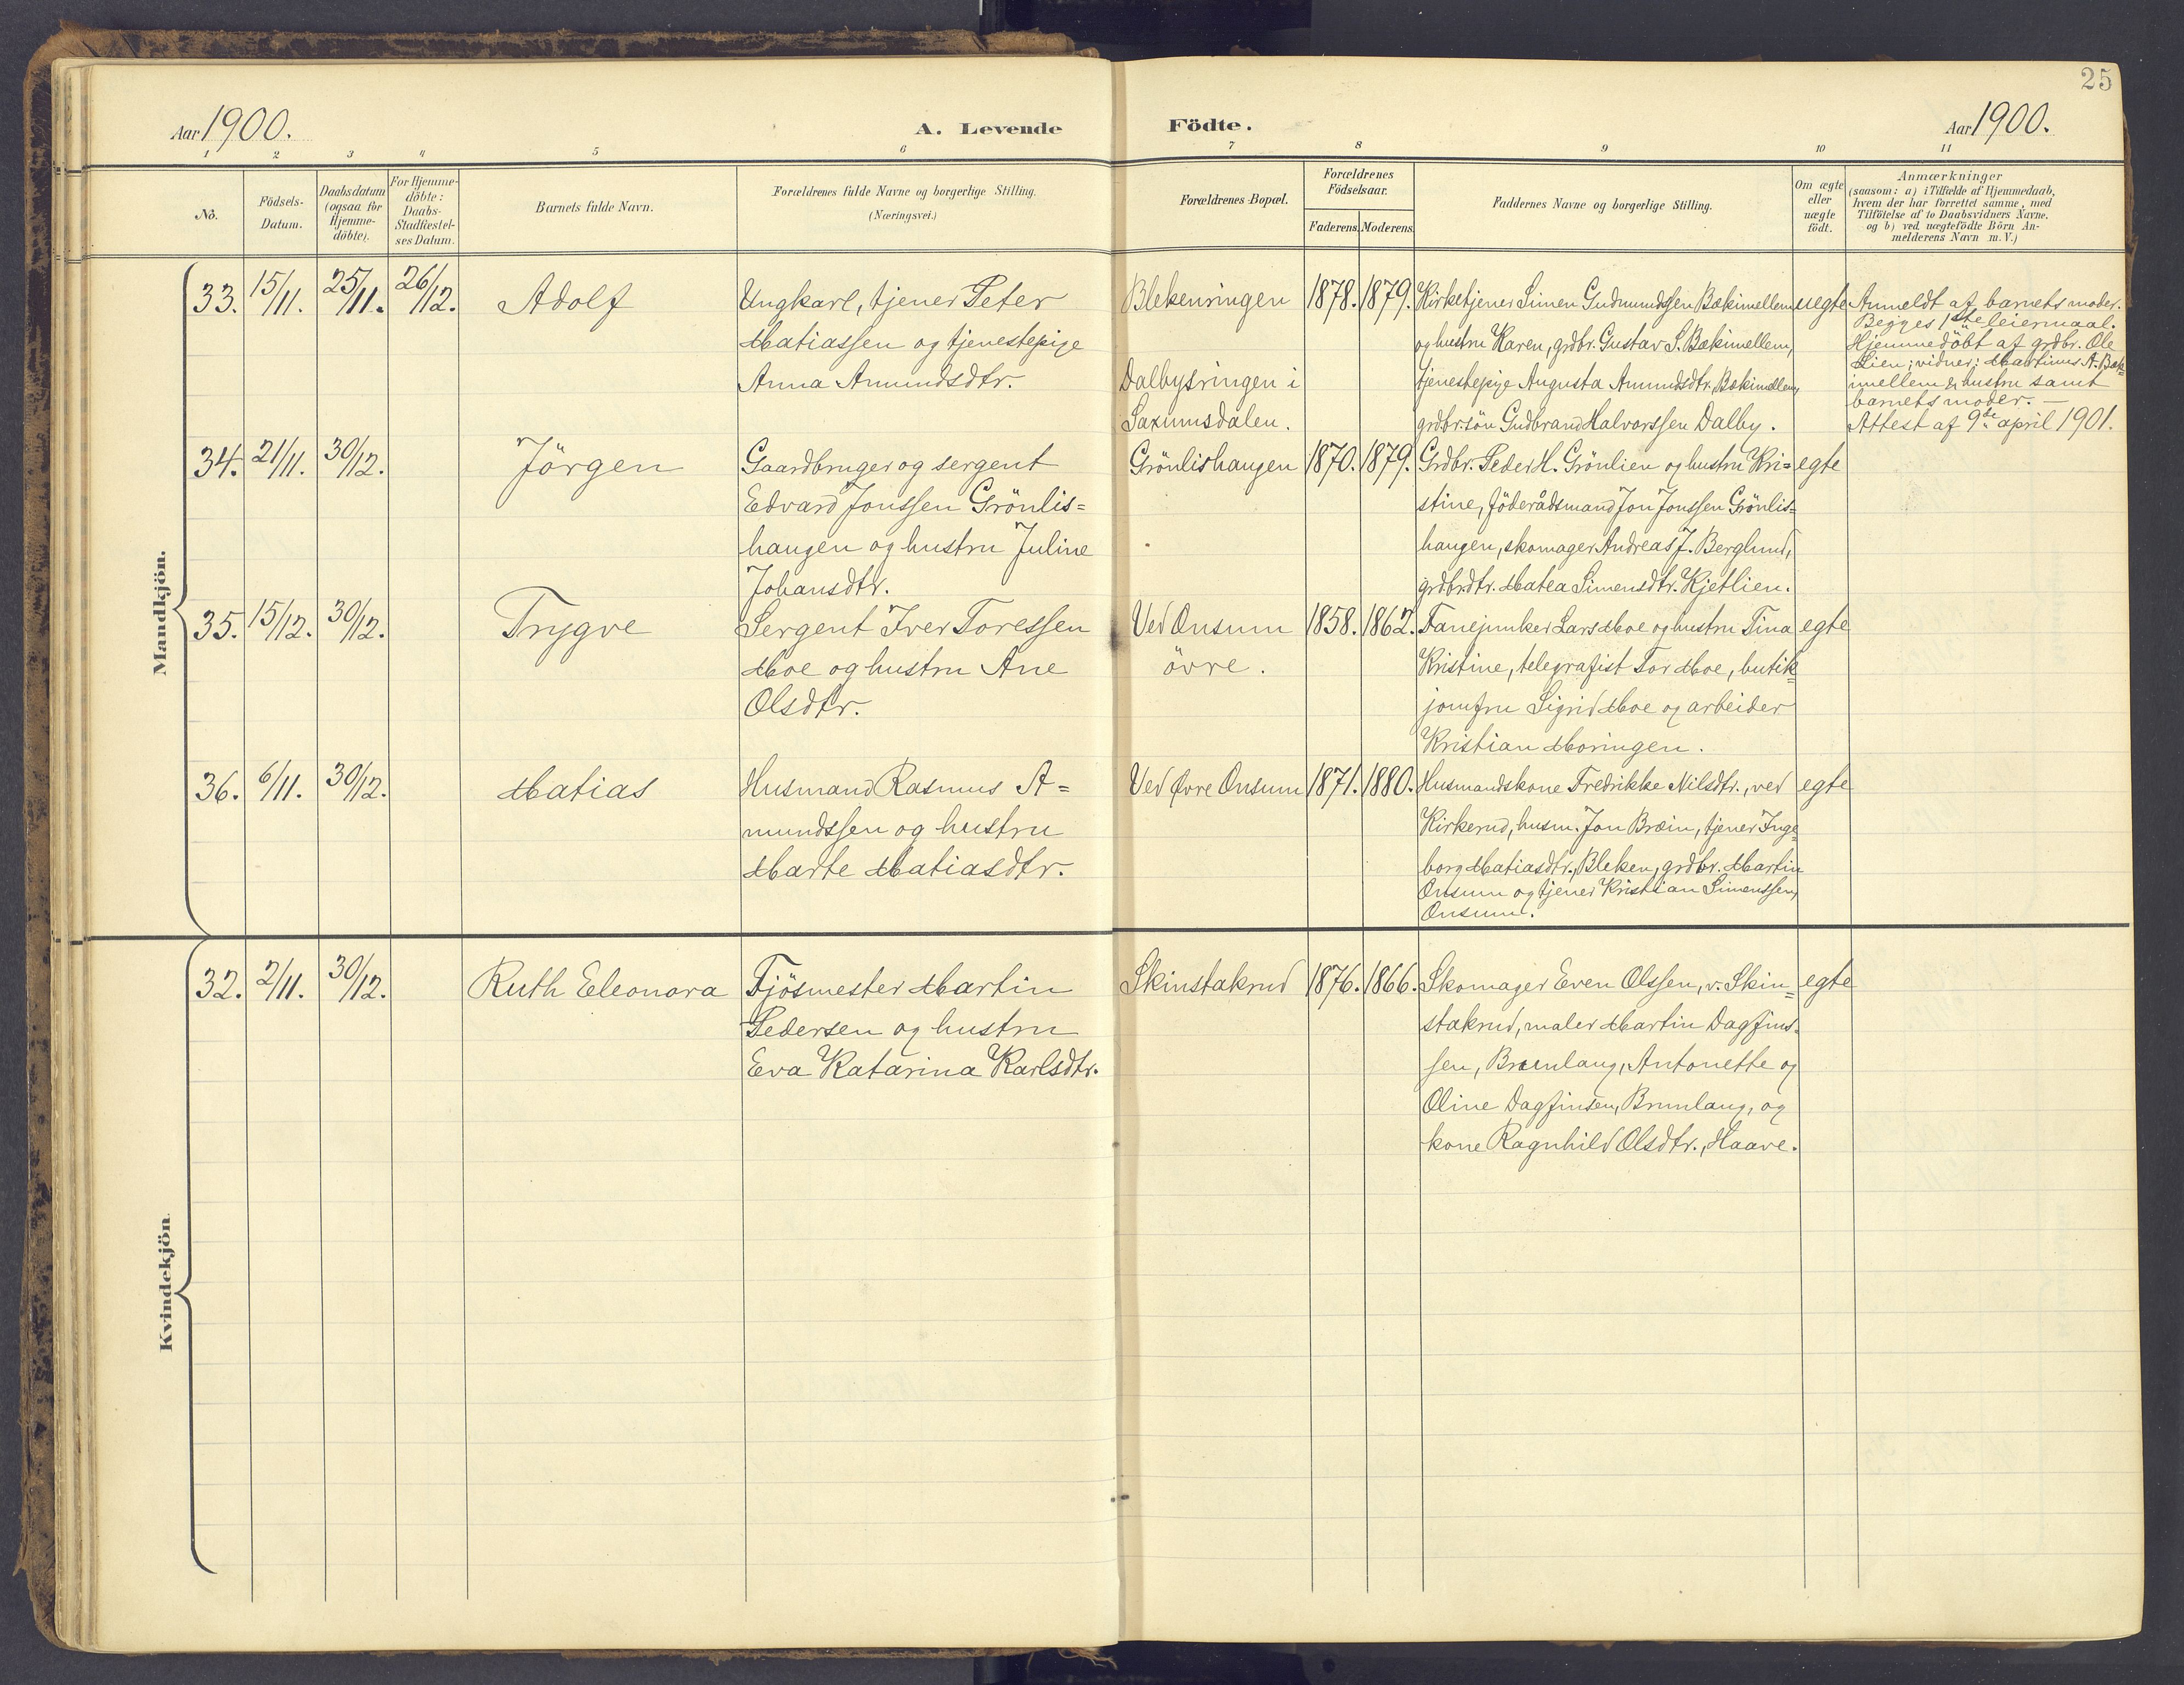 25
Aar 1900.
A. Levende Födte.
Aar 1900.
1 2 3 4 5 6 7 8 9 10 11
No.
Födsels-
Datum.
Daabsdatum
(ogsaa for
Hjemme-
döbte).
For Hjemme-
döbte:
Daabs-
Stadfæstel-
ses Datum.
Barnets fulde Navn.
Forældrenes fulde Navne og borgerlige Stilling.
(Næringsvei.)
Forældrenes Bopæl.
Forældrenes
Födselsaar.
Faderens. Moderens.
Faddernes Navne og borgerlige Stilling.
Om ægte
eller
uægte
födt.
Anmærkninger
(saasom: a) i Tilfælde af Hjemmedaab,
hvem der har forrettet samme, med
Tilföielse af to Daabsvidners Navne.
og b) ved uægtefödte Börn An-
melderens Navn m. V.)
Mandkjön.
33. 15/11. 25/11. 26/12. Adolf
Ungkarl, tjener Peter
Matiassen og tjenestepige
Anna Amundsdtr.
Blekenringen
Dalbysringen i
Saxumsdalen.
1878. 1879.
Kirketjener Simen Gudmundssen Bækimellem
og hustru Karen, grdbr. Gustav S. Bækimellem,
tjenestepige Augusta Amundsdtr. Bækimellem,
grdbr.sön Gudbrand Halvorssen Dalby.
uegte
Anmeldt af barnets moder.
Begges 1ste leiermaal.
Hjemmedöbt af grdbr. Ole
Lien; vidner: Martinus A. Bæk-
imellem & hustru samt
barnets moder. —
Attest af 9de april 1901.
34. 21/11. 30/12. Jörgen
Gaardbruger og sergent
Edvard Jonssen Grönlis=
haugen og hustru Juline
Johansdtr.
Grönlishaugen
1870. 1879.
Grdbr. Peder H. Grönlien og hustru Kri=
stine, föderådsmand Jon Jonssen Grönlis=
haugen, skomager Andreas J. Berglund,
grdbrdtr. Matea Simensdtr. Kjetlien.
egte
35. 15/12. 30/12. Trygve
Sergent Iver Toressen
Moe og hustru Ane
Olsdtr.
Ved Onsum
övre.
1858. 1862.
Fanejunker Lars Moe og hustru Tina
Kristine, telegrafist Tor Moe, butik=
jomfru Sigrid Moe og arbeider
Kristian Moringen.
egte
36. 6/11. 30/12. Matias
Husmand Rasmus A=
mundssen og hustru
Marte Matiasdtr.
Ved Øvre Onsum
1871. 1880.
Husmandskone Fredrikke Nilsdtr., ved
Kirkerud, husm. Jon Bræin, tjener Inge=
borg Matiasdtr., Bleken, grdbr. Martin
Onsum og tjener Kristian Simenssen,
Onsum.
egte
Kvindekjön.
32. 2/11. 30/12. Ruth Eleonora
Fjösmester Martin
Pedersen og hustru
Eva Katarina Karlsdtr.
Skinstakrud
1876. 1866.
Skomager Even Olssen, v. Skin=
stakrud, maler Martin Dagfins=
sen, Brunlaug, Antonette og
Oline Dagfinsen, Brunlaug, og
kone Ragnhild Olsdtr., Haave.
egte